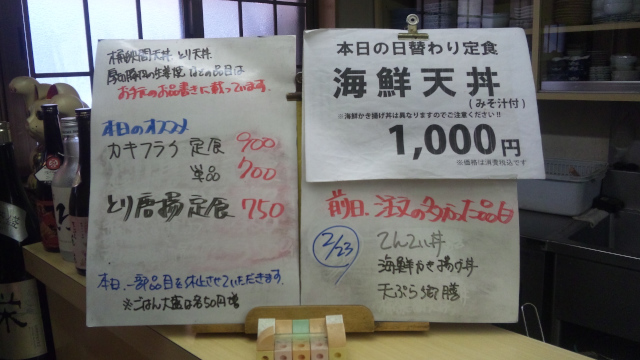 天丼 とり天丼
の生姜焼 などの品目は
お手元のお品書きに載っています。
本日のオススメ
カキフライ 定食 900
単品 700
とり唐揚定食 750
本日、一部品目を休止させていただきます。
※ごはん大盛は各50円増
本日の日替わり定食
海鮮天丼
(みそ汁付)
※海鮮かき揚げ丼は異なりますのでご注意ください!!
1,000円
※価格は消費税込です
前日、注文の多かった品目
2/23
海鮮かき揚げ丼
天ぷら御膳